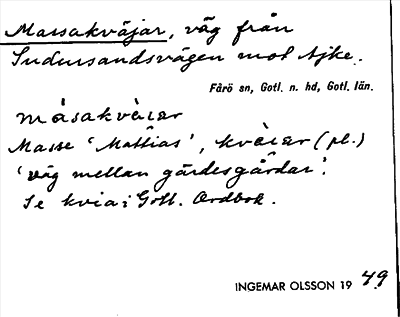 Massakväjar, väg från
Sudersandsvägen mot Ajke.
Fårö sn, Gotl. n. hd, Gotl. län.
màsakvàıar
Masse 'Mattias', kvàıar (pl.)
'väg mellan gärdesgårdar'.
Se kvia i Gotl. Ordbok.
INGEMAR OLSSON 19 49